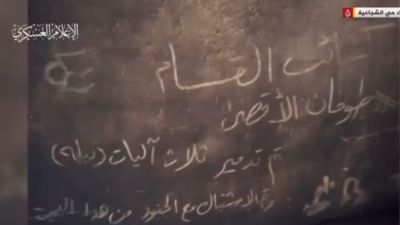 الإعلام العسكري
حي الشجاعية
كتائب القسام
طوفان الأقصى
تم تدمير ثلاث آليات
وتم الاشتباك مع الجنود من هذا البيت